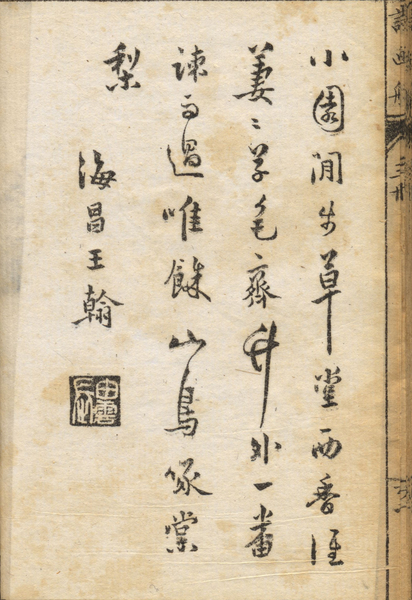 小園閒步草堂西香徑
萋〻草色齊竹外一番
疎雨過唯餘山鳥啄棠
梨
海昌王翰